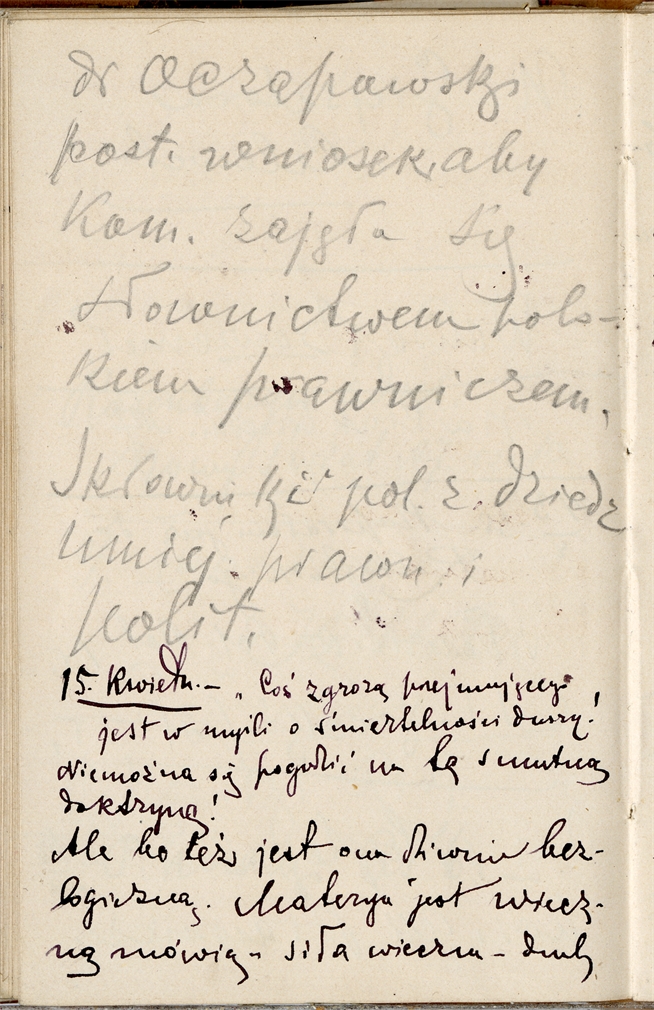 dr Oczapowski
post. wniosek, aby
Kom. zajęła się
słownictwem pols-
kiem prawniczem,
Skłowniki pol. z. dziedz
umiej. prawn i
polit.
15. Kwietn. – „Coś zgrozą przejmującego
jest w myśli o śmiertelności duszy!
Niemożna się pogodzić na tę smutną
doktrynę!
Ale bo też jest ona dziwnie bez-
logiczną. Materya jest wiecz-
ną mówią – siła wieczna – duch